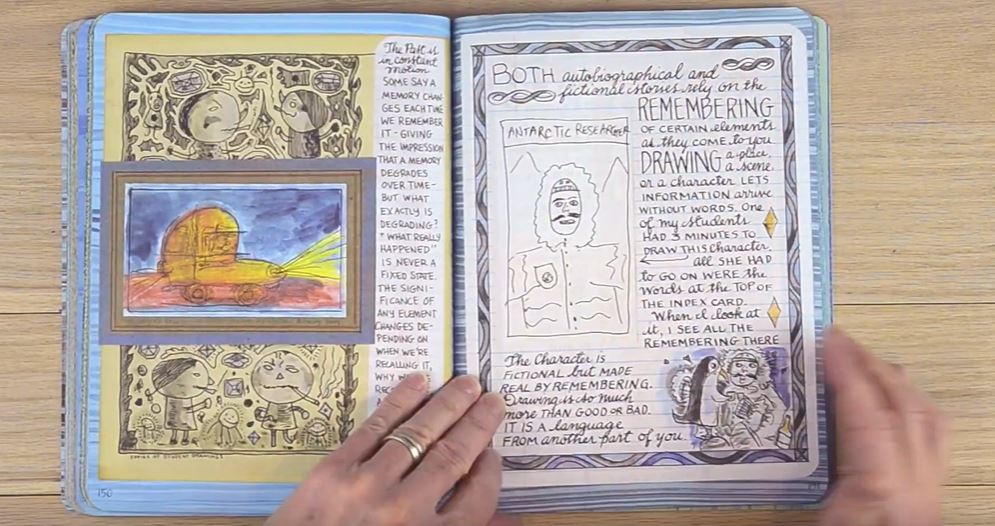 The Past is
in constant
motion
SOME SAY A
MEMORY CHAN-
GES EACH TIME
WE REMEMBER
IT - GIVING
THE IMPRESSION
THAT A MEMORY
DEGRADES
OVER TIME-
BUT WHAT
EXACTLY IS
DEGRADING?
"WHAT REALLY
HAPPENED"
IS NEVER A
FIXED STATE.
THE SIGNI-
FICANCE OF
ANY ELEMENT
CHANGES DE-
PENDING ON
WHEN WE'RE
RECALLING IT,
WHY
COPIES OF STUDENT DRAWINGS
150
BOTH autobiographical and
fictional stories rely on the
REMEMBERING
OF CERTAIN elements
as they COME to you.
DRAWING a place,
a scene,
or a character LETS
INFORMATION arrive
WITHOUT WORDS. One
of my students
HAD 3 MINUTES TO
DRAW THIS character,
all SHE HAD
to GO ON WERE the
words at the TOP OF
THE INDEX CARD.
When I look at
it, I SEE ALL THE
REMEMBERING THERE
ANTARCTIC RESEARCHER
The Character is
FICTIONAL but MADE
REAL BY REMEMBERING.
Drawing is so much
more THAN GOOD OR BAD.
IT IS A language
FROM another part of you.